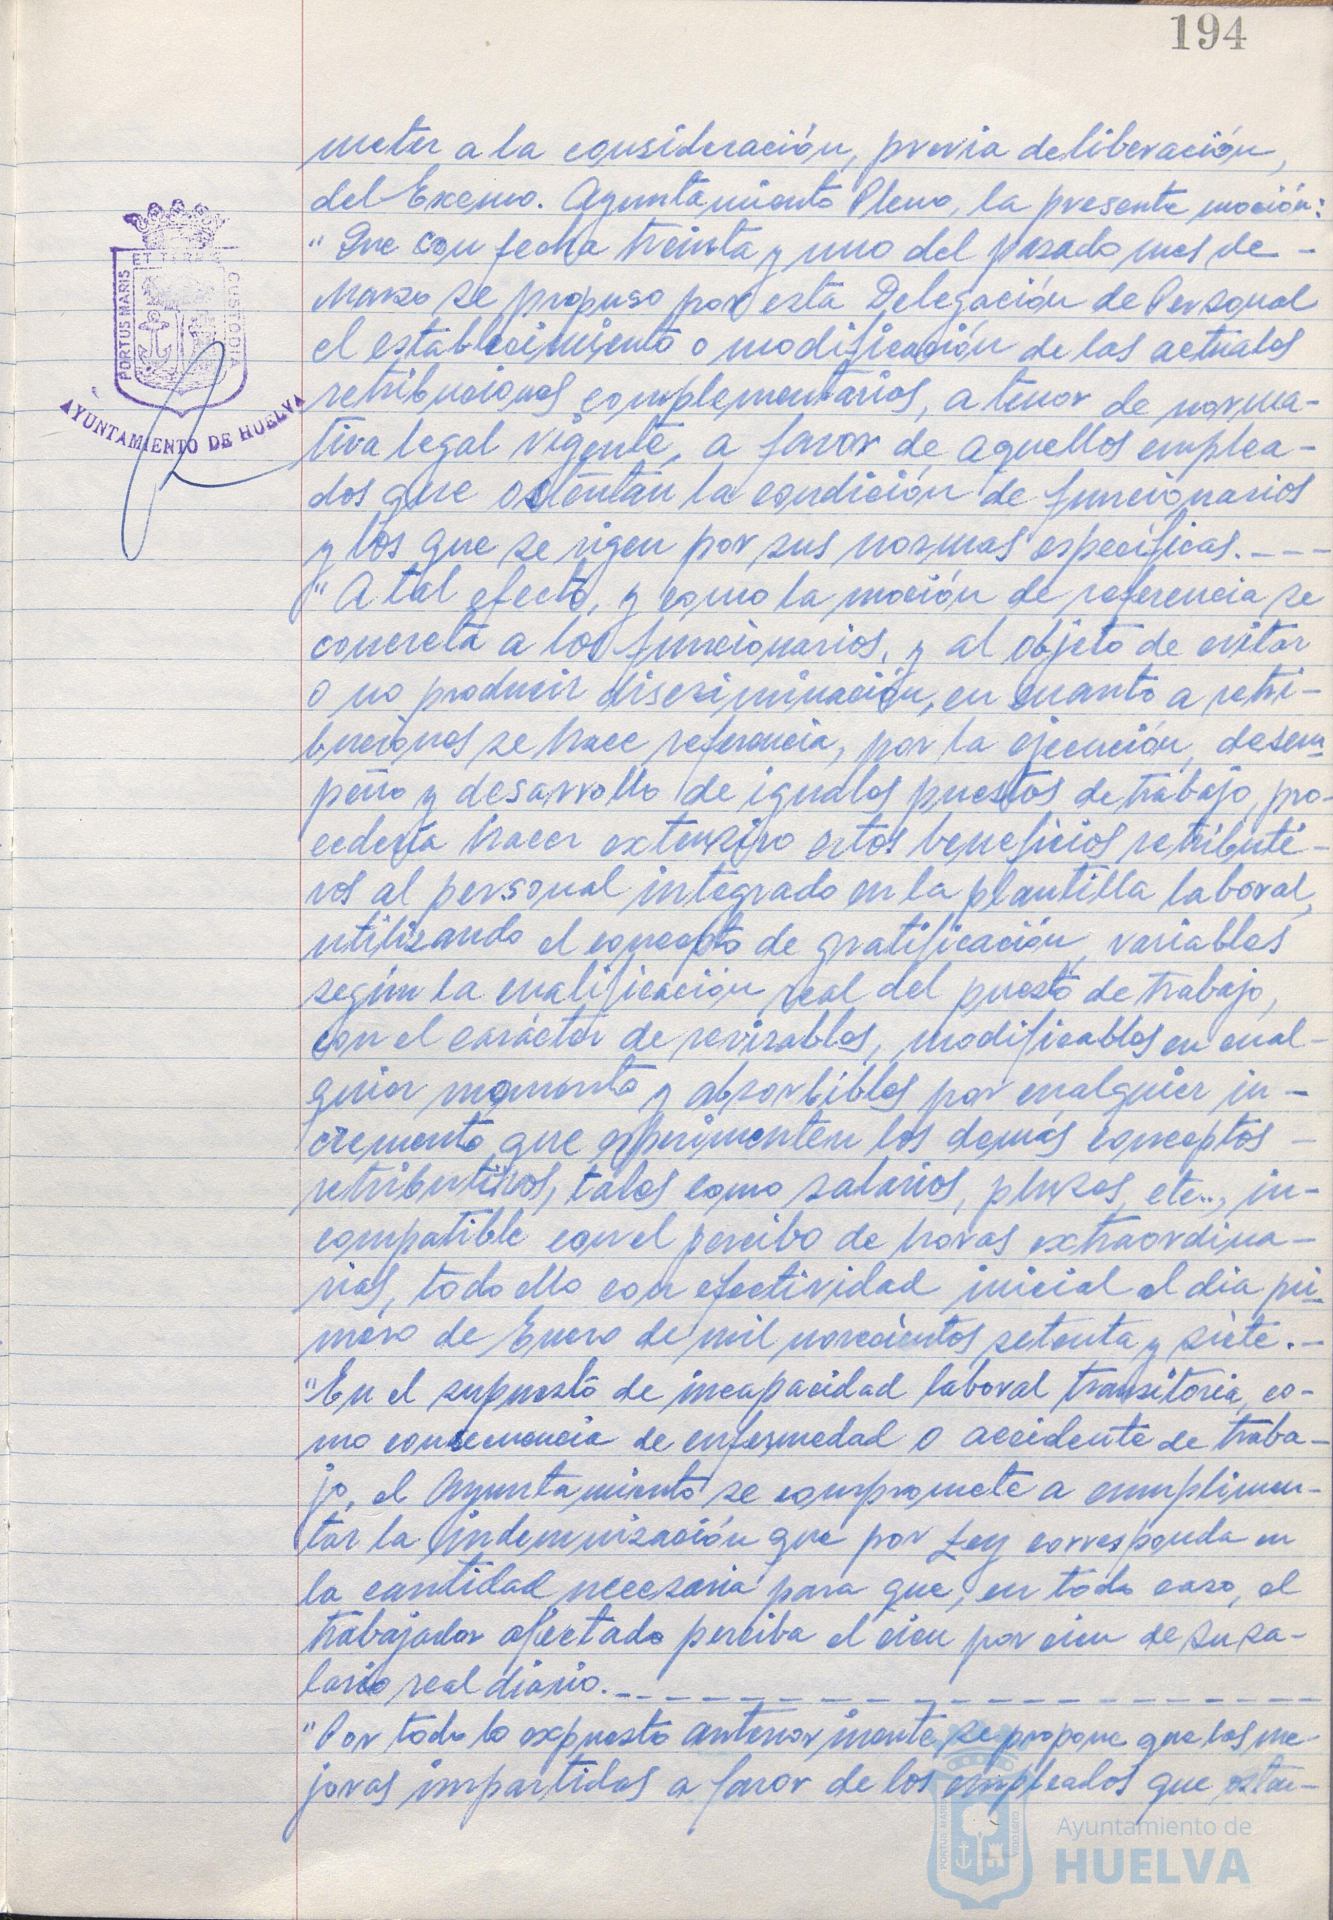 194
meter a la consideración, previa deliberación,
del Excmo. Ayuntamiento Pleno, la presente moción:
"Que con fecha treinta y uno del pasado mes de -
Marzo se propuso por esta Delegación de Personal
el establecimiento o modificación de las actuales
retribuciones complementarias, a tenor de norma-
tiva legal vigente, a favor de aquellos emplea-
dos que ostentan la condición de funcionarios
y los que se rigen por sus normas específicas. - - -
"A tal efecto, y como la moción de referencia se
concreta a los funcionarios, y al objeto de evitar
o no producir discriminación, en cuanto a retri-
buciones se hace referencia, por la ejecución, desem-
peño y desarrollo de iguales puestos de trabajo, pro-
cedería hacer extensivo estos beneficios retributi-
vos al personal integrado en la plantilla laboral,
utilizando el concepto de gratificación, variables
según la cualificación real del puesto de trabajo,
con el carácter de revisables, modificables en cual-
quier momento y absorbibles por cualquier in-
cremento que experimenten los demás conceptos -
retributivos, tales como salarios, pluses, etc.., in-
compatible con el percibo de horas extraordina-
rias, todo ello con efectividad inicial el día pri-
mero de Enero de mil novecientos setenta y siete. -
"En el supuesto de incapacidad laboral transitoria, co-
mo consecuencia de enfermedad o accidente de traba-
jo, el Ayuntamiento se compromete a cumplimen-
tar la indemnización que por Ley corresponda en
la cantidad necesaria para que, en todo caso, el
trabajador afectado perciba el cien por cien de su sa-
lario real diario. - - - - - - - - - - - - - - - -
"Por todo lo expuesto anteriormente, se propone que las me-
joras impartidas a favor de los empleados que están-
PORTUS MARIS
ET TERRE
CUSTODIA
AYUNTAMIENTO DE HUELVA
Ayuntamiento de
HUELVA